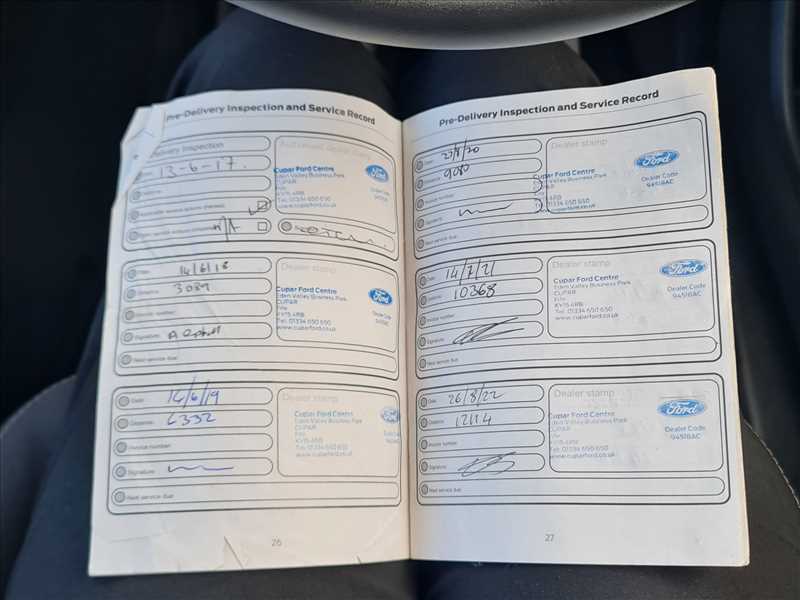 Pre-Delivery Inspection and Service Record
Delivery Inspection
Date: 13-6-17.
Distance:
N/A
Cupar Ford Centre
Eden Valley Business Park
CUPAR
Fife
KY15 4RB
Tel: 01334 650 650
www.cuparford.co.uk
Ford
Dealer Code
Date: 14/6/18
Distance: 3089
Invoice number:
Signature:
Next service due:
Dealer stamp
Cupar Ford Centre
Eden Valley Business Park
CUPAR
Fife
KY15 4RB
Tel: 01334 650 650
www.cuparford.co.uk
Ford
Dealer Code
Date: 14/6/19
Distance: 6332
Invoice number:
Signature:
Next service due:
Dealer stamp
Cupar Ford Centre
Eden Valley Business Park
CUPAR
Fife
KY15 4RB
Tel: 01334 650 650
www.cuparford.co.uk
Ford
26
Pre-Delivery Inspection and Service Record
Date: 27/8/20
Distance: 9080
Invoice number:
Signature:
Next service due:
Dealer stamp
Cupar Ford Centre
Eden Valley Business Park
CUPAR
Fife
KY15 4RB
Tel: 01334 650 650
www.cuparford.co.uk
Ford
Dealer Code
94518AC
Date: 14/7/21
Distance: 10368
Invoice number:
Signature:
Next service due:
Dealer stamp
Cupar Ford Centre
Eden Valley Business Park
CUPAR
Fife
KY15 4RB
Tel: 01334 650 650
www.cuparford.co.uk
Ford
Dealer Code
94518AC
Date: 26/8/22
Distance: 12114
Invoice number:
Signature:
Next service due:
Dealer stamp
Cupar Ford Centre
Eden Valley Business Park
CUPAR
Fife
KY15 4RB
Tel: 01334 650 650
www.cuparford.co.uk
Ford
Dealer Code
94518AC
27